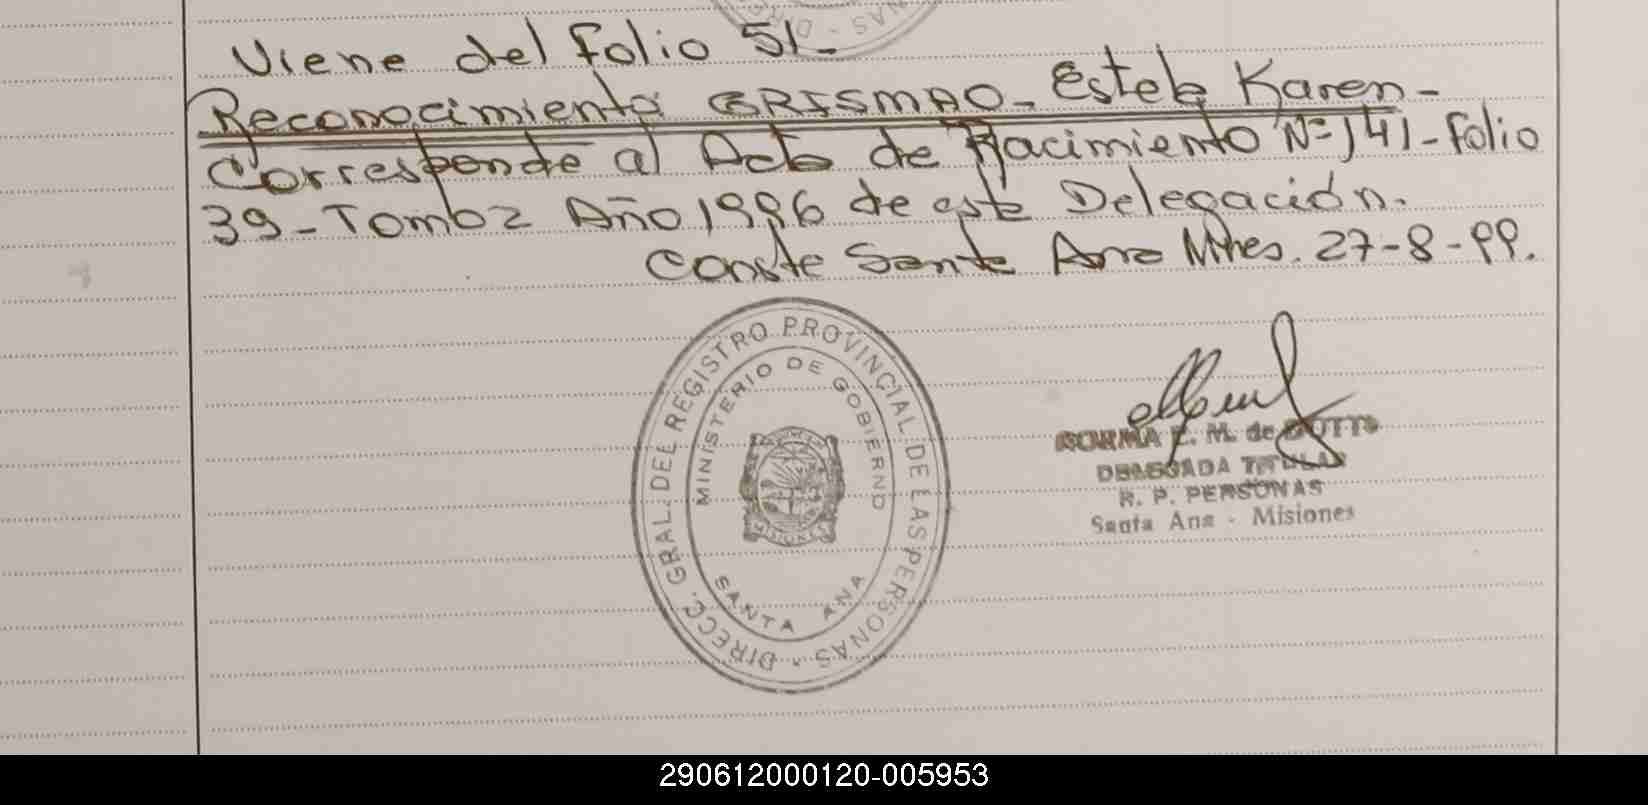 Viene del folio 51-
Reconocimiento GRISMAO- Estela Karen-
Corresponde al Acta de Nacimiento Nº 141- folio
39- Tomo 2 Año 1996 de esta Delegación.
Conste Santa Ana Mnes. 27-8-99.
DIRECC. GRAL. DEL REGISTRO PROVINCIAL DE LAS PERSONAS
MINISTERIO DE GOBIERNO
MISIONES
SANTA ANA
NORMA E. M. de DOTTO
DELEGADA TITULAR
R. P. PERSONAS
Santa Ana - Misiones
290612000120-005953